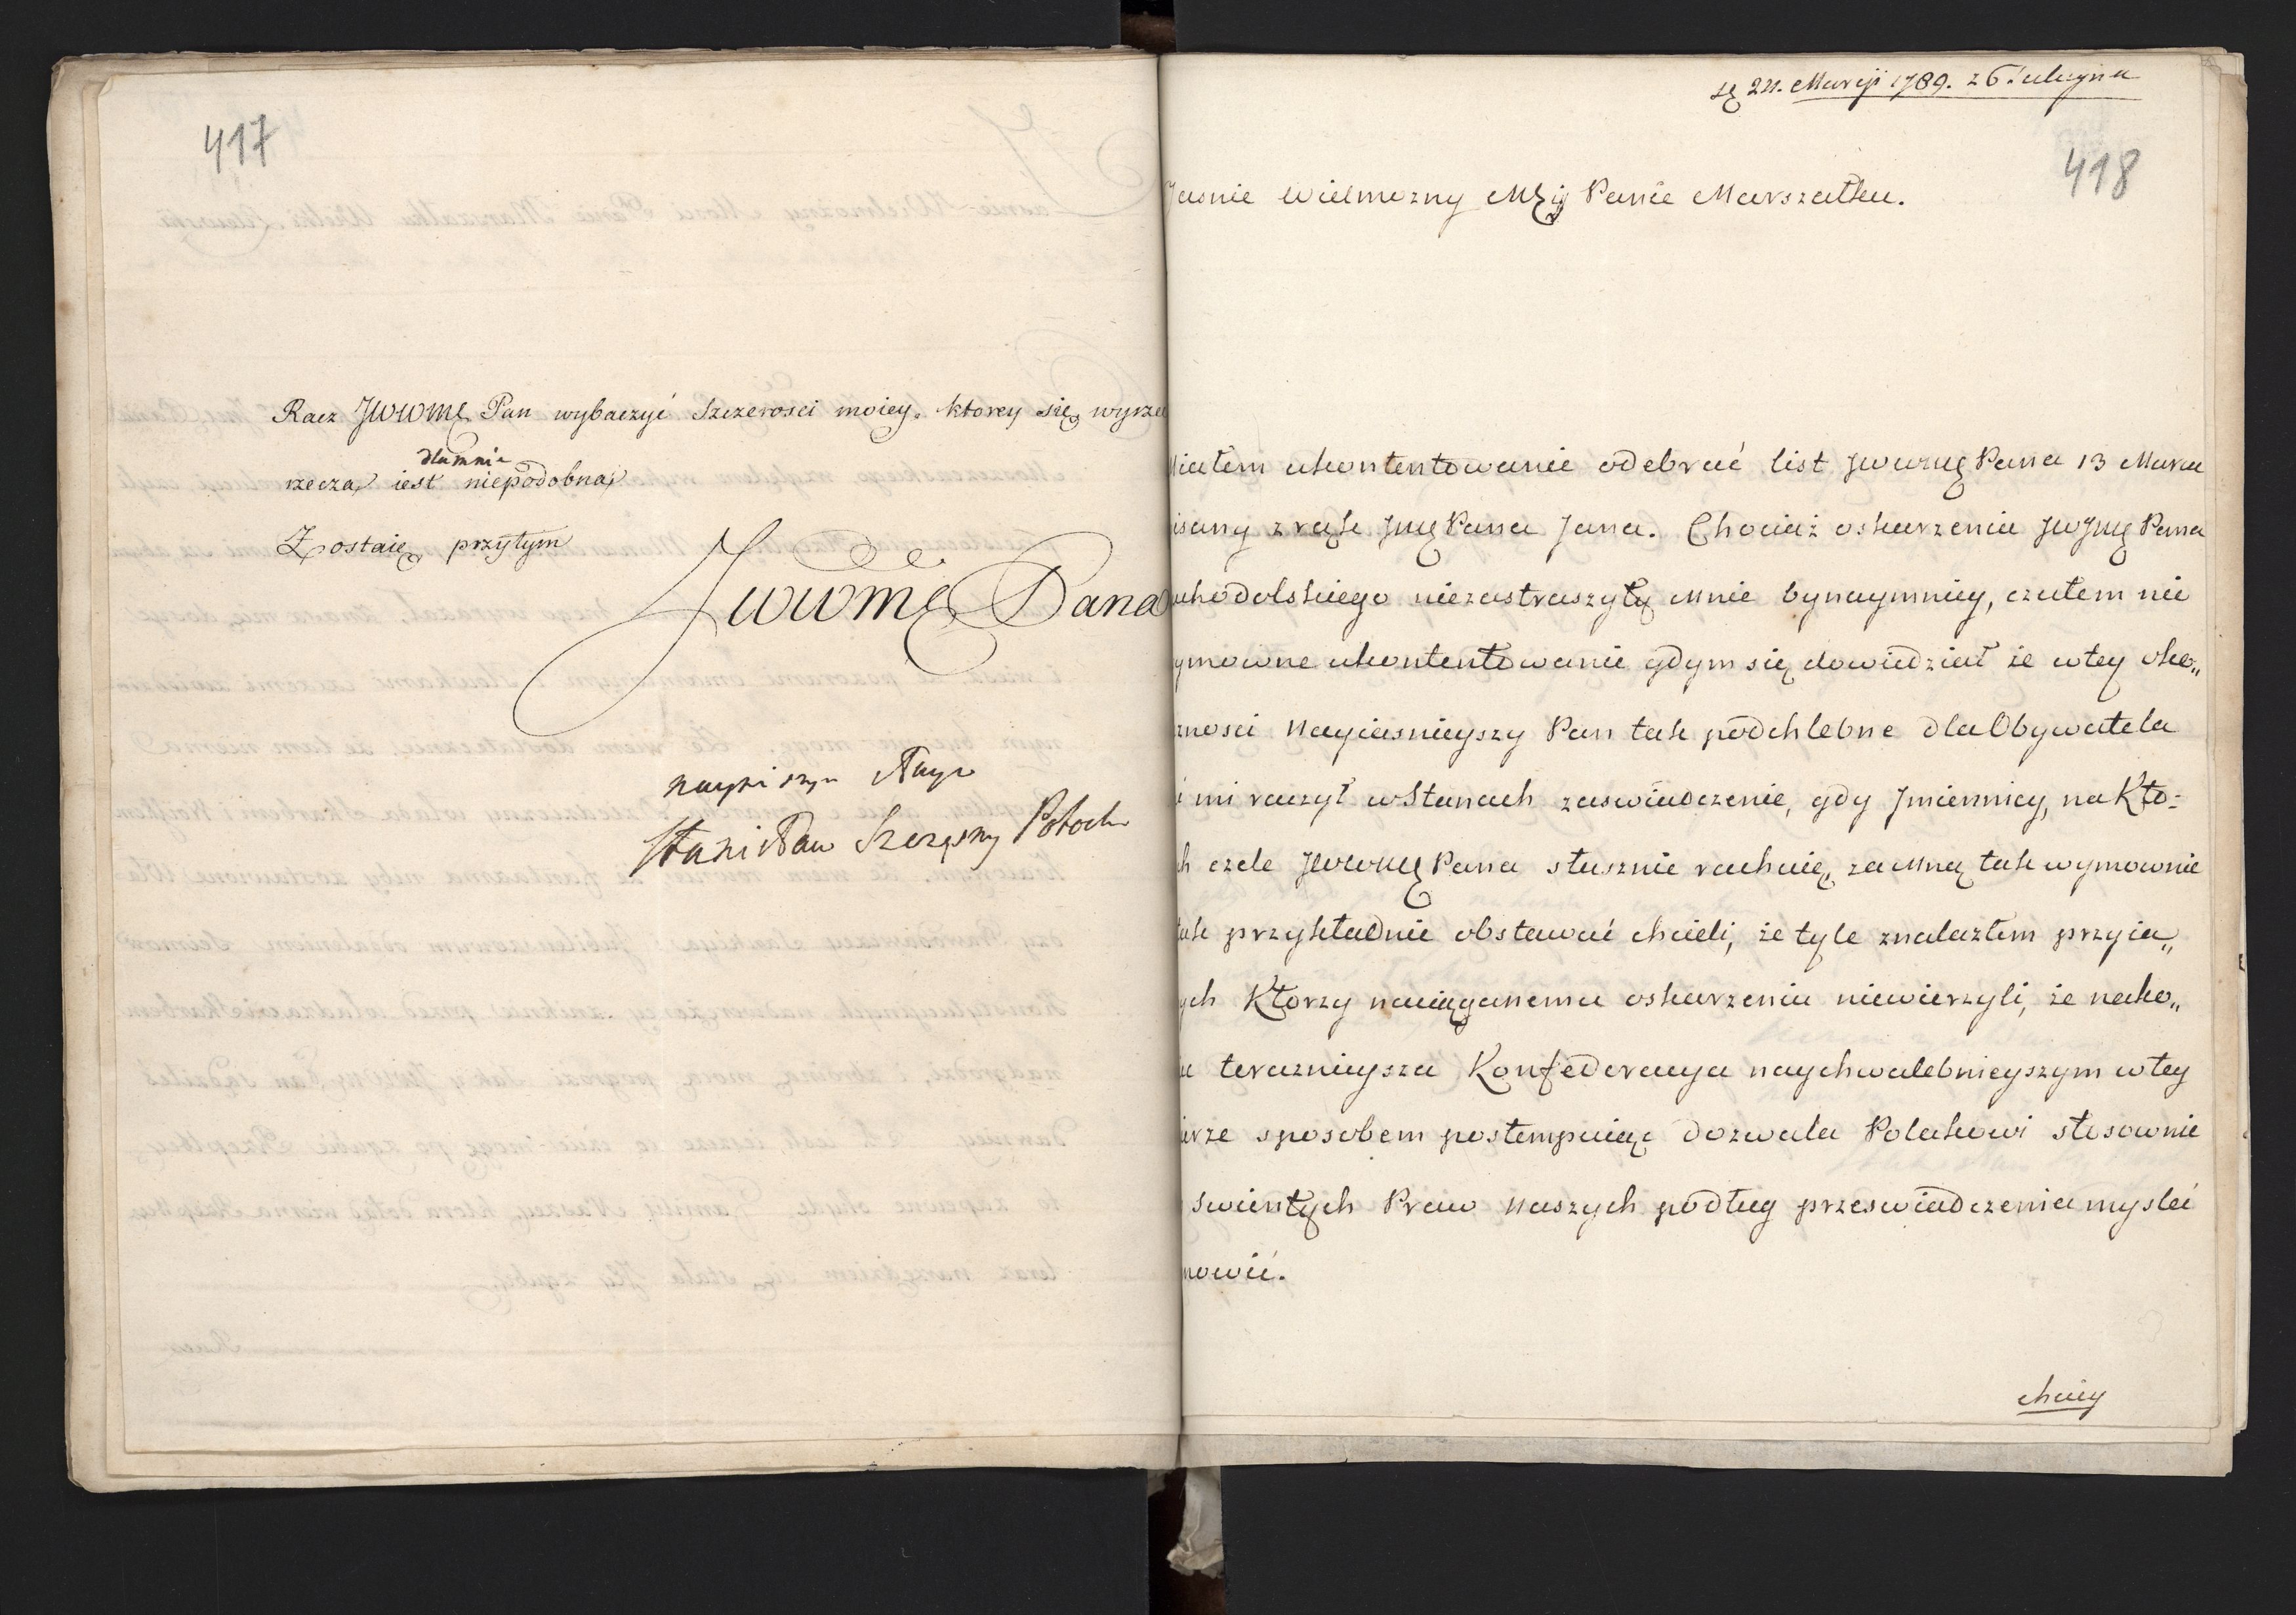 417
Racz JWWMę Pan wybaczyć Szczerosci moiey, ktorey się wyrze
dlamnie
rzeczą iest niepodobną
Zostaię przytym
JWWMę Pana
nayniższym sługą
Stanisław Szczęsny Potocki
24. Marcji 1789. z Tulczyna
418
Jasnie Wielmozny Mżij Panie Marszałku.
Miałem ukontentowanie odebrać list JWWMę Pana 13 Marca
isany z rąk JMę Pana Jana. Chociaż oskarzenia JWJMę Pana
uchodolskiego niezastraszyły mnie bynaymniey, czułem nie
ymowne ukontentowanie gdym się dowiedział że wtey oko„
znosci Nayiasnieyszy Pan tak podchlebne dla Obywatela
ć mi raczył w Stanach zaswiadczenie, gdy Jmiennicy, na Kto=
h czele JWWMę Pana słusznie rachuię, za mną tak wymownie
tak przykładnie obstawać chcieli, że tyle znalazłem przyia„
ych Ktorzy naciąganemu oskarzeniu niewierzyli, że nako„
c terazniejsza Konfederacya naychwalebnieyszym wtey
ierze sposobem postempuiąc dozwala Polakowi stosownie
Swientych Praw naszych podług przeswiadczenia mysleć
mowić.
chciey